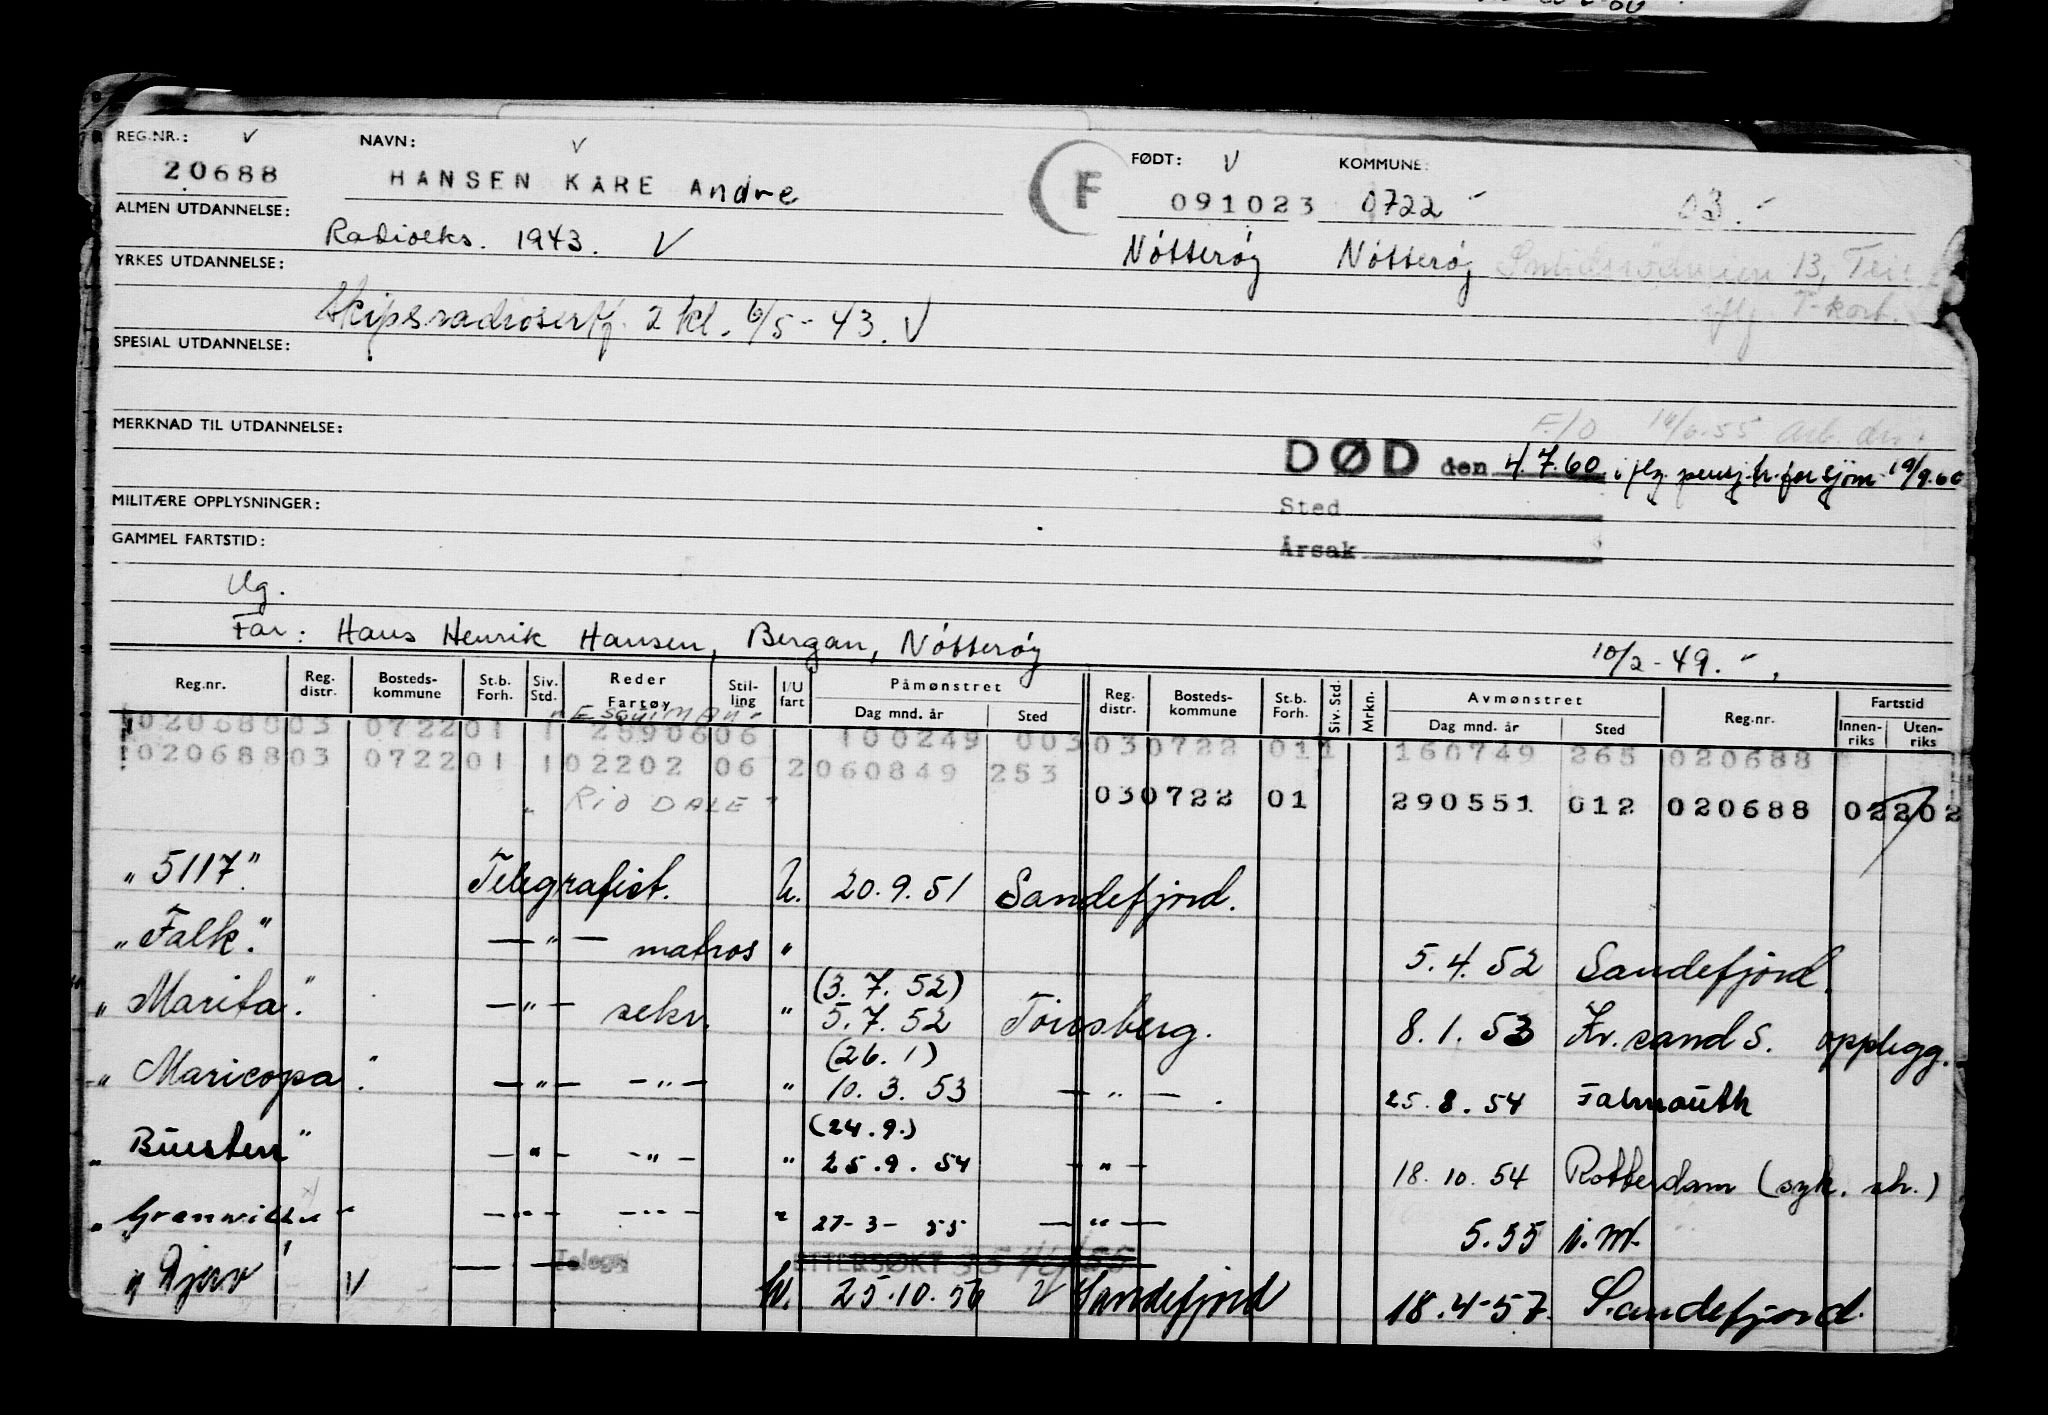 REG.NR.: V NAVN: V F FØDT: V KOMMUNE:
20688 HANSEN KÅRE Andre 091023 0722 03.
ALMEN UTDANNELSE: Radioeks. 1943. V Nötteröy Nötteröy 13,
YRKES UTDANNELSE: T-kort.
Skipsradiosertf. 2 kl. 6/5-43. V
SPESIAL UTDANNELSE:
MERKNAD TIL UTDANNELSE: F/O
DØD den 4.7.60. i flg. pensj.tr. for sjöm. 19/9.60
MILITÆRE OPPLYSNINGER: Sted
GAMMEL FARTSTID: Årsak
Ug.
Far: Hans Henrik Hansen, Bergan, Nötteröy 10/2-49.
Reg.nr. Reg. distr. Bosteds-kommune St.b. Forh. Siv. Std. Reder Fartøy Stil-ling I/U fart Påmønstret Dag mnd. år Sted Reg. distr. Bosteds-kommune St.b. Forh. Siv. Std. Mrkn. Avmønstret Dag mnd. år Sted Reg.nr. Fartstid Innen-riks Uten-riks
"Esquiman"
020688 03 0722 01 1 25906 06 100249 003 03 0722 01 1 160749 265 020688
020688 03 0722 01 1 02202 06 2 060849 253
"Rio DALE" 03 0722 01 290551 012 020688 02202
"5117" Telegrafist. U. 20.9.51 Sandefjord.
"Falk." — " — matros " 5.4.52 Sandefjord.
(3.7.52)
"Marita." — " — sekr. " 5.7.52 Tönsberg. 8.1.53 Kr.sand S. opplegg.
(26.1)
"Maricopa". — " — — " — " 10.3.53 — " — . 25.8.54 Falmouth
(24.9.)
"Buesten" — " — — " — " 25.9.54 — " — 18.10.54 Rotterdam (syk. sh.)
"Granville" — " — — " — " 27-3-55 — " — 5.55 i.m.
Telegr ETTERSØKT
"Djerv" V — — U. 25.10.56 V Sandefjord 18.4-57. Sandefjord.